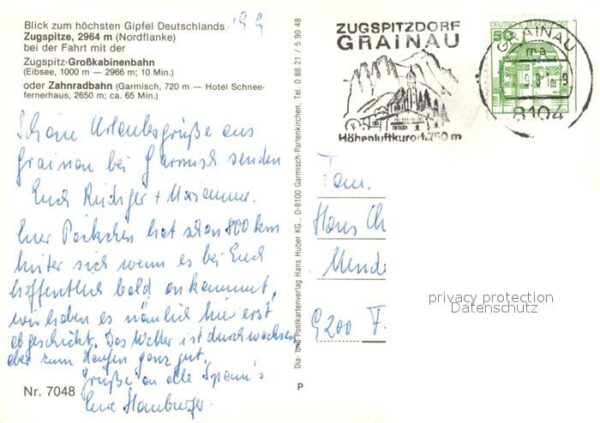 Blick zum höchsten Gipfel Deutschlands
Zugspitze, 2964 m (Nordflanke)
bei der Fahrt mit der
Zugspitz-Großkabinenbahn
(Eibsee, 1000 m — 2966 m; 10 Min.)
oder Zahnradbahn (Garmisch, 720 m — Hotel Schnee-
fernerhaus, 2650 m; ca. 65 Min.)
Schöne Urlaubsgrüße aus
Grainau bei Garmisch senden
Euch Rüdiger + Marianne.
Euer Päckchen hat schon 800 km
hinter sich wenn es bei Euch
hoffentlich bald ankommt,
wir haben es nämlich hier erst
abgeschickt. Das Wetter ist durchwachsen
aber zum Laufen ganz gut.
Grüße an alle
Eure Hamburger.
Nr. 7048
P
Dia- und Postkartenverlag Hans Huber KG., D-8100 Garmisch-Partenkirchen, Tel. 0 88 21 / 5 90 48
ZUGSPITZDORF
GRAINAU
Höhenluftkurort 750 m
GRAINAU
ma
8104
50
Fam.
Hans Ch
F.
privacy protection
Datenschutz